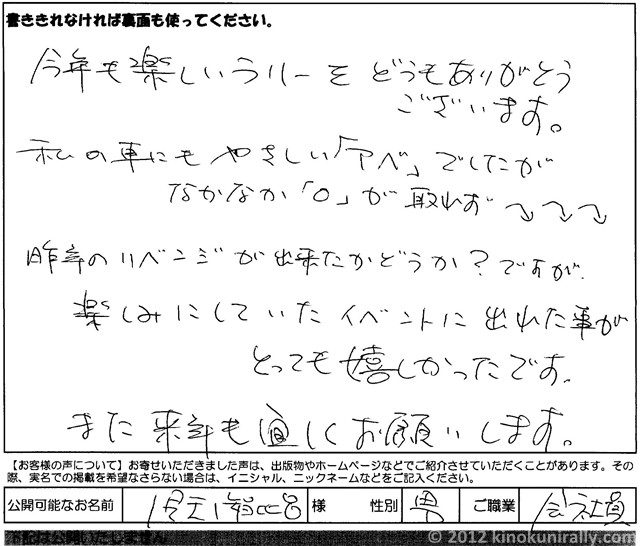 書ききれなければ裏面も使ってください。
今年も楽しいラリーをどうもありがとう
ございます。
私の車にもやさしい「アベ」でしたが
なかなか「0」が取れず↘↘↘
昨年のリベンジが出来たかどうか?ですが
楽しみにしていたイベントに出れた事が
とっても嬉しかったです。
また来年も宜しくお願いします。
【お客様の声について】お寄せいただきました声は、出版物やホームページなどでご紹介させていただくことがあります。その
際、実名での掲載を希望なさらない場合は、イニシャル、ニックネームなどをご記入ください。
公開可能なお名前 様 性別 男 ご職業 会社員
下記は公開いたしません
© 2012 kinokunirally.com